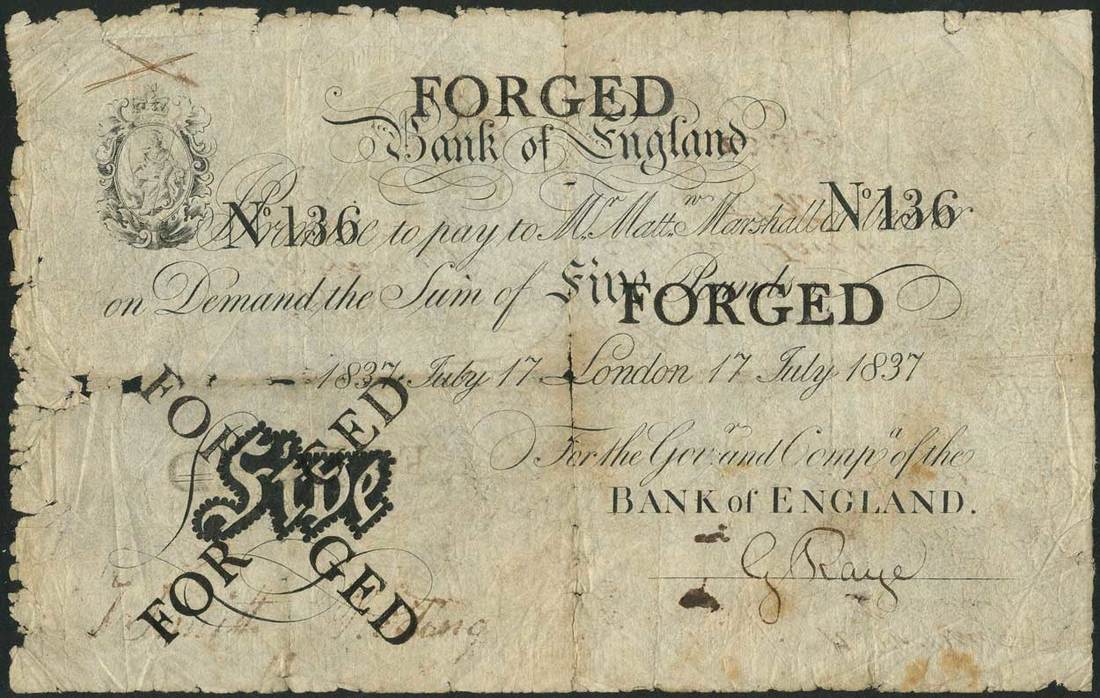 FORGED
Bank of England
Nº 136 Nº 136
I Promise to pay to Mr. Mattw. Marshall or Bearer
on Demand the Sum of Five Pounds
FORGED
1837 July 17 London 17 July 1837
For the Govr. and Compa. of the
BANK of ENGLAND.
G Raye
FORGED
Five
FORGED